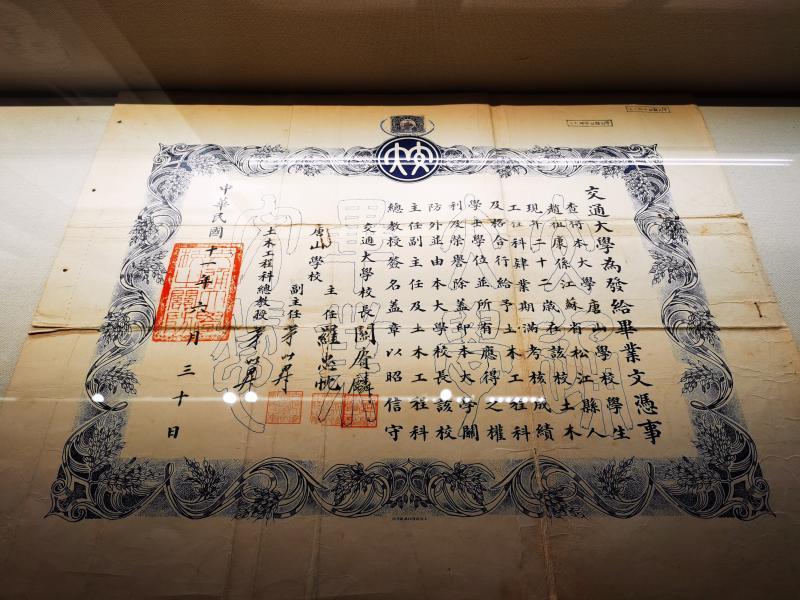 交通大學為發給畢業文憑事
查得本大學唐山學校學生
趙祖康係江蘇省松江縣人
現年二十二歲在該校土木
工程科肄業期滿考核成績
及格合行給予土木工程科
學士學位並所有應得之權
利及榮譽除蓋印本大學關
防外並由本大學校長該校
主任副主任及土木工程科
總教授簽名蓋章以昭信守
交通大學校長 關賡麟
唐山學校 主任 羅忠忱
副主任 茅以昇
土木工程科總教授 茅以昇
中華民國十一年六月三十日